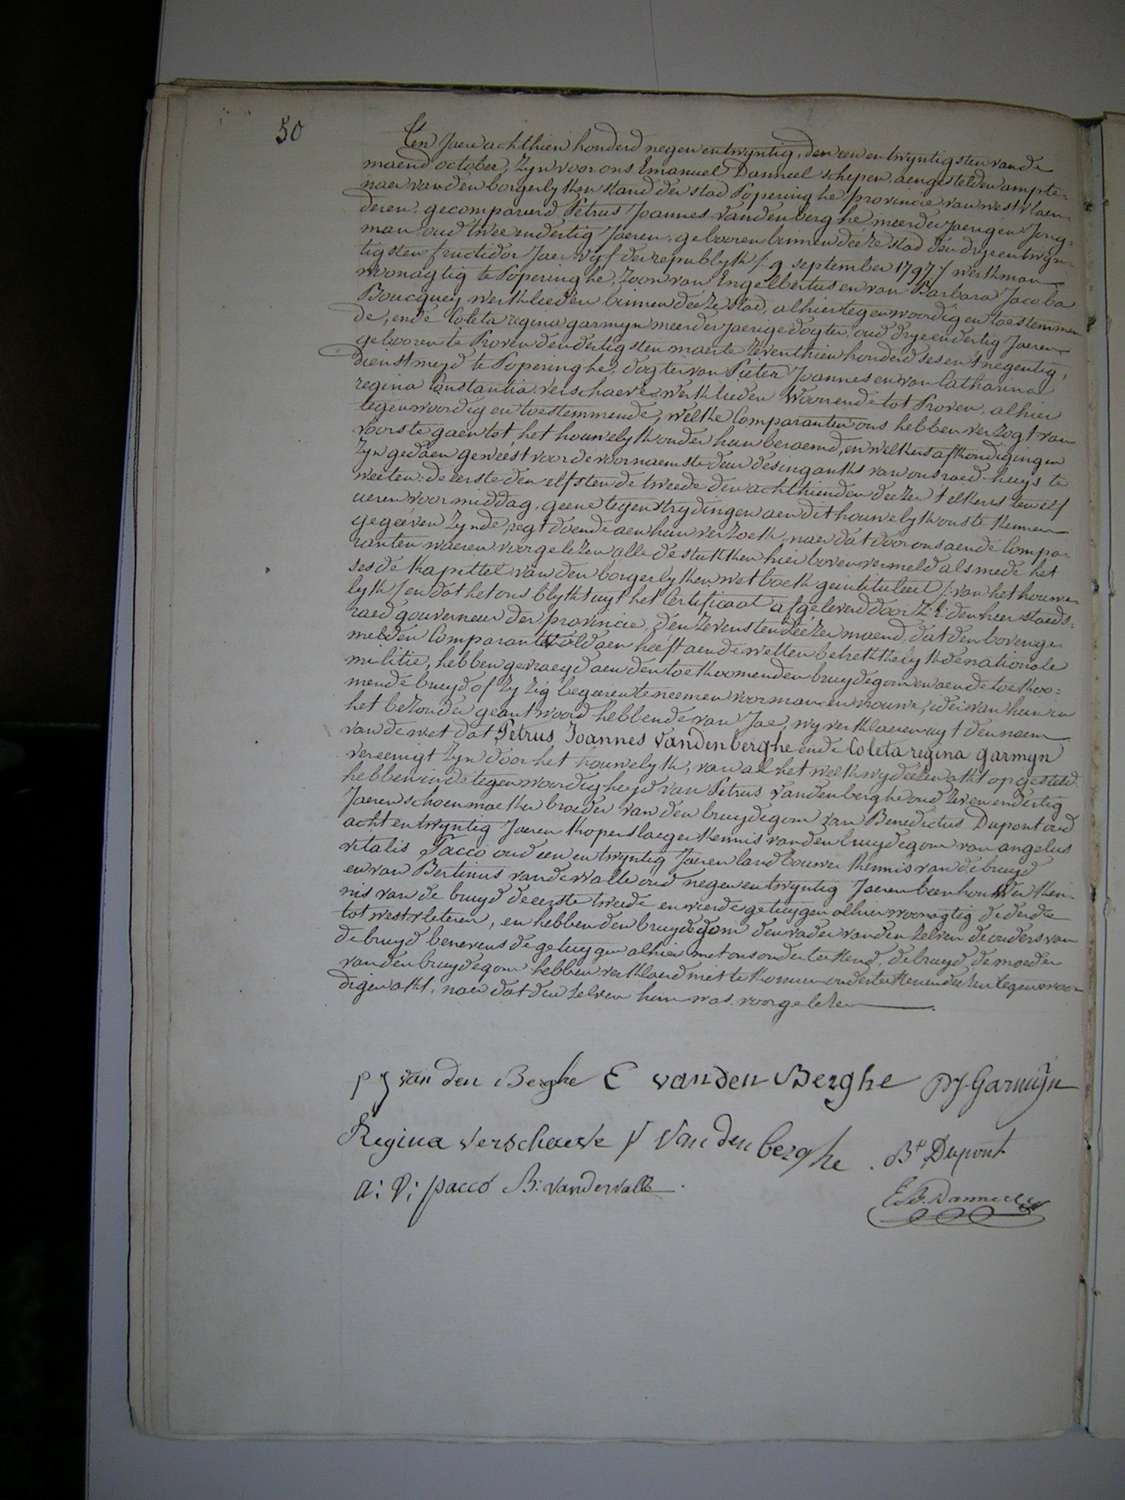 50
Ten Jaere achthien honderd negen en twyntig, den een en twyntigsten van de
maend october, zyn voor ons Emanuel Danneel schepen, aengestelden ampte-
naer van den borgerlyken stand der stad Poperinghe provincie van westvlaen-
deren, gecompareerd Petrus Joannes vanden berghe meerderjaerigen Jong-
man oud twee en dertig Jaeren, gebooren binnen deéze stad den dryentwyn-
tigsten fructidor Jaer vyf der republyk /: 9 september 1797 :/ werkman
woonagtig te Poperinghe, zoon van Engelbertus en van Barbara Jacoba
Boucquey werklieden binnen deeze stad, alhier tegenwoordig en toestemmen
de, ende Coleta regina garmyn meerderjaerige dogter, oud dryendertig Jaeren
gebooren te Proven den dertigsten maerte zeventhien honderd sesen't negentig,
dienstmeyd te Poperinghe, dogter van Pieter Joannes en van Catharina
regina Constantia verschaeve werklieden woonende tot Proven, alhier
tegenwoordig en toestemmende, welke Comparanten ons hebben verzogt van
voorste gaen tot het houwelyk onder hun beraemd, en welkers afkondigingen
zyn gedaen geweést voor de voornaemste deur des inganks van ons raed-huys te
weeten: de eerste den elfsten de tweede den achtthienden deézer telkens ten elf
ueren voor middag, geene tegenstrydingen aen dit houwelyk ons te kennen
gegeéven zynde, regt doende aen hun verzoek, naer dat door ons aen de Compa-
ranten waeren voorgelezen alle de stukken hier boven vermeld als mede het
sesde kapittel van den borgerlyken wetboek geintituleert /: van het houwe-
lyk :/ en dat het ons blykt uyt het Certificaat afgeleverd door den heer staeds-
raed gouverneur der provincie, den zevensten deézer maend, dat den bovenge-
melden Comparant voldaen heéft aen de wetten betrekkelyk de nationale
militie, hebben gevraegd aen den toekoomenden bruydegom en aen de toekoo-
mende bruyd of zy zig begeeren te neemen voor man en vrouw, ider van hun in
het bezonder geantwoord hebbende van Jae, wy verklaeren uyt den naem
van de wet dat Petrus Joannes vanden berghe ende Coleta regina garmyn
vereenigt zyn door het houwelyk, van al het welk wy deézen akt opgesteld
hebben in de tegenwoordigheyd van Petrus vanden berghe oud zeven en dertig
Jaeren schoenmaeker broeder van den bruydegom van Benedictus Dupont oud
acht en twyntig Jaeren koperslaeger kennis van den bruydegom van angelus
vitalis Pacco oud een en twyntig Jaeren landbouwer kennis van de bruyd
en van Bertinus vandewalle oud negen en twyntig Jaeren beenhouwer ken-
nis van de bruyd de eerste tweede en vierde getuygen alhier woonagtig de derde
tot westvleteren, en hebben den bruydegom den vader van den zelven de ouders van
de bruyd benevens de getuygen alhier met ons onderteekend, de bruyd de moeder
van den bruydegom hebben verklaerd niet te konnen onderteekenen deézen tegenwoor-
digen akt, naer dat den zelven hun was voorgelezen.
p j van den Berghe E vanden Berghe PJ Garmijn
Regina verschaeve P Van den berghe . Bt Dupont
a: v: pacco B: vandewalle .
Danneel